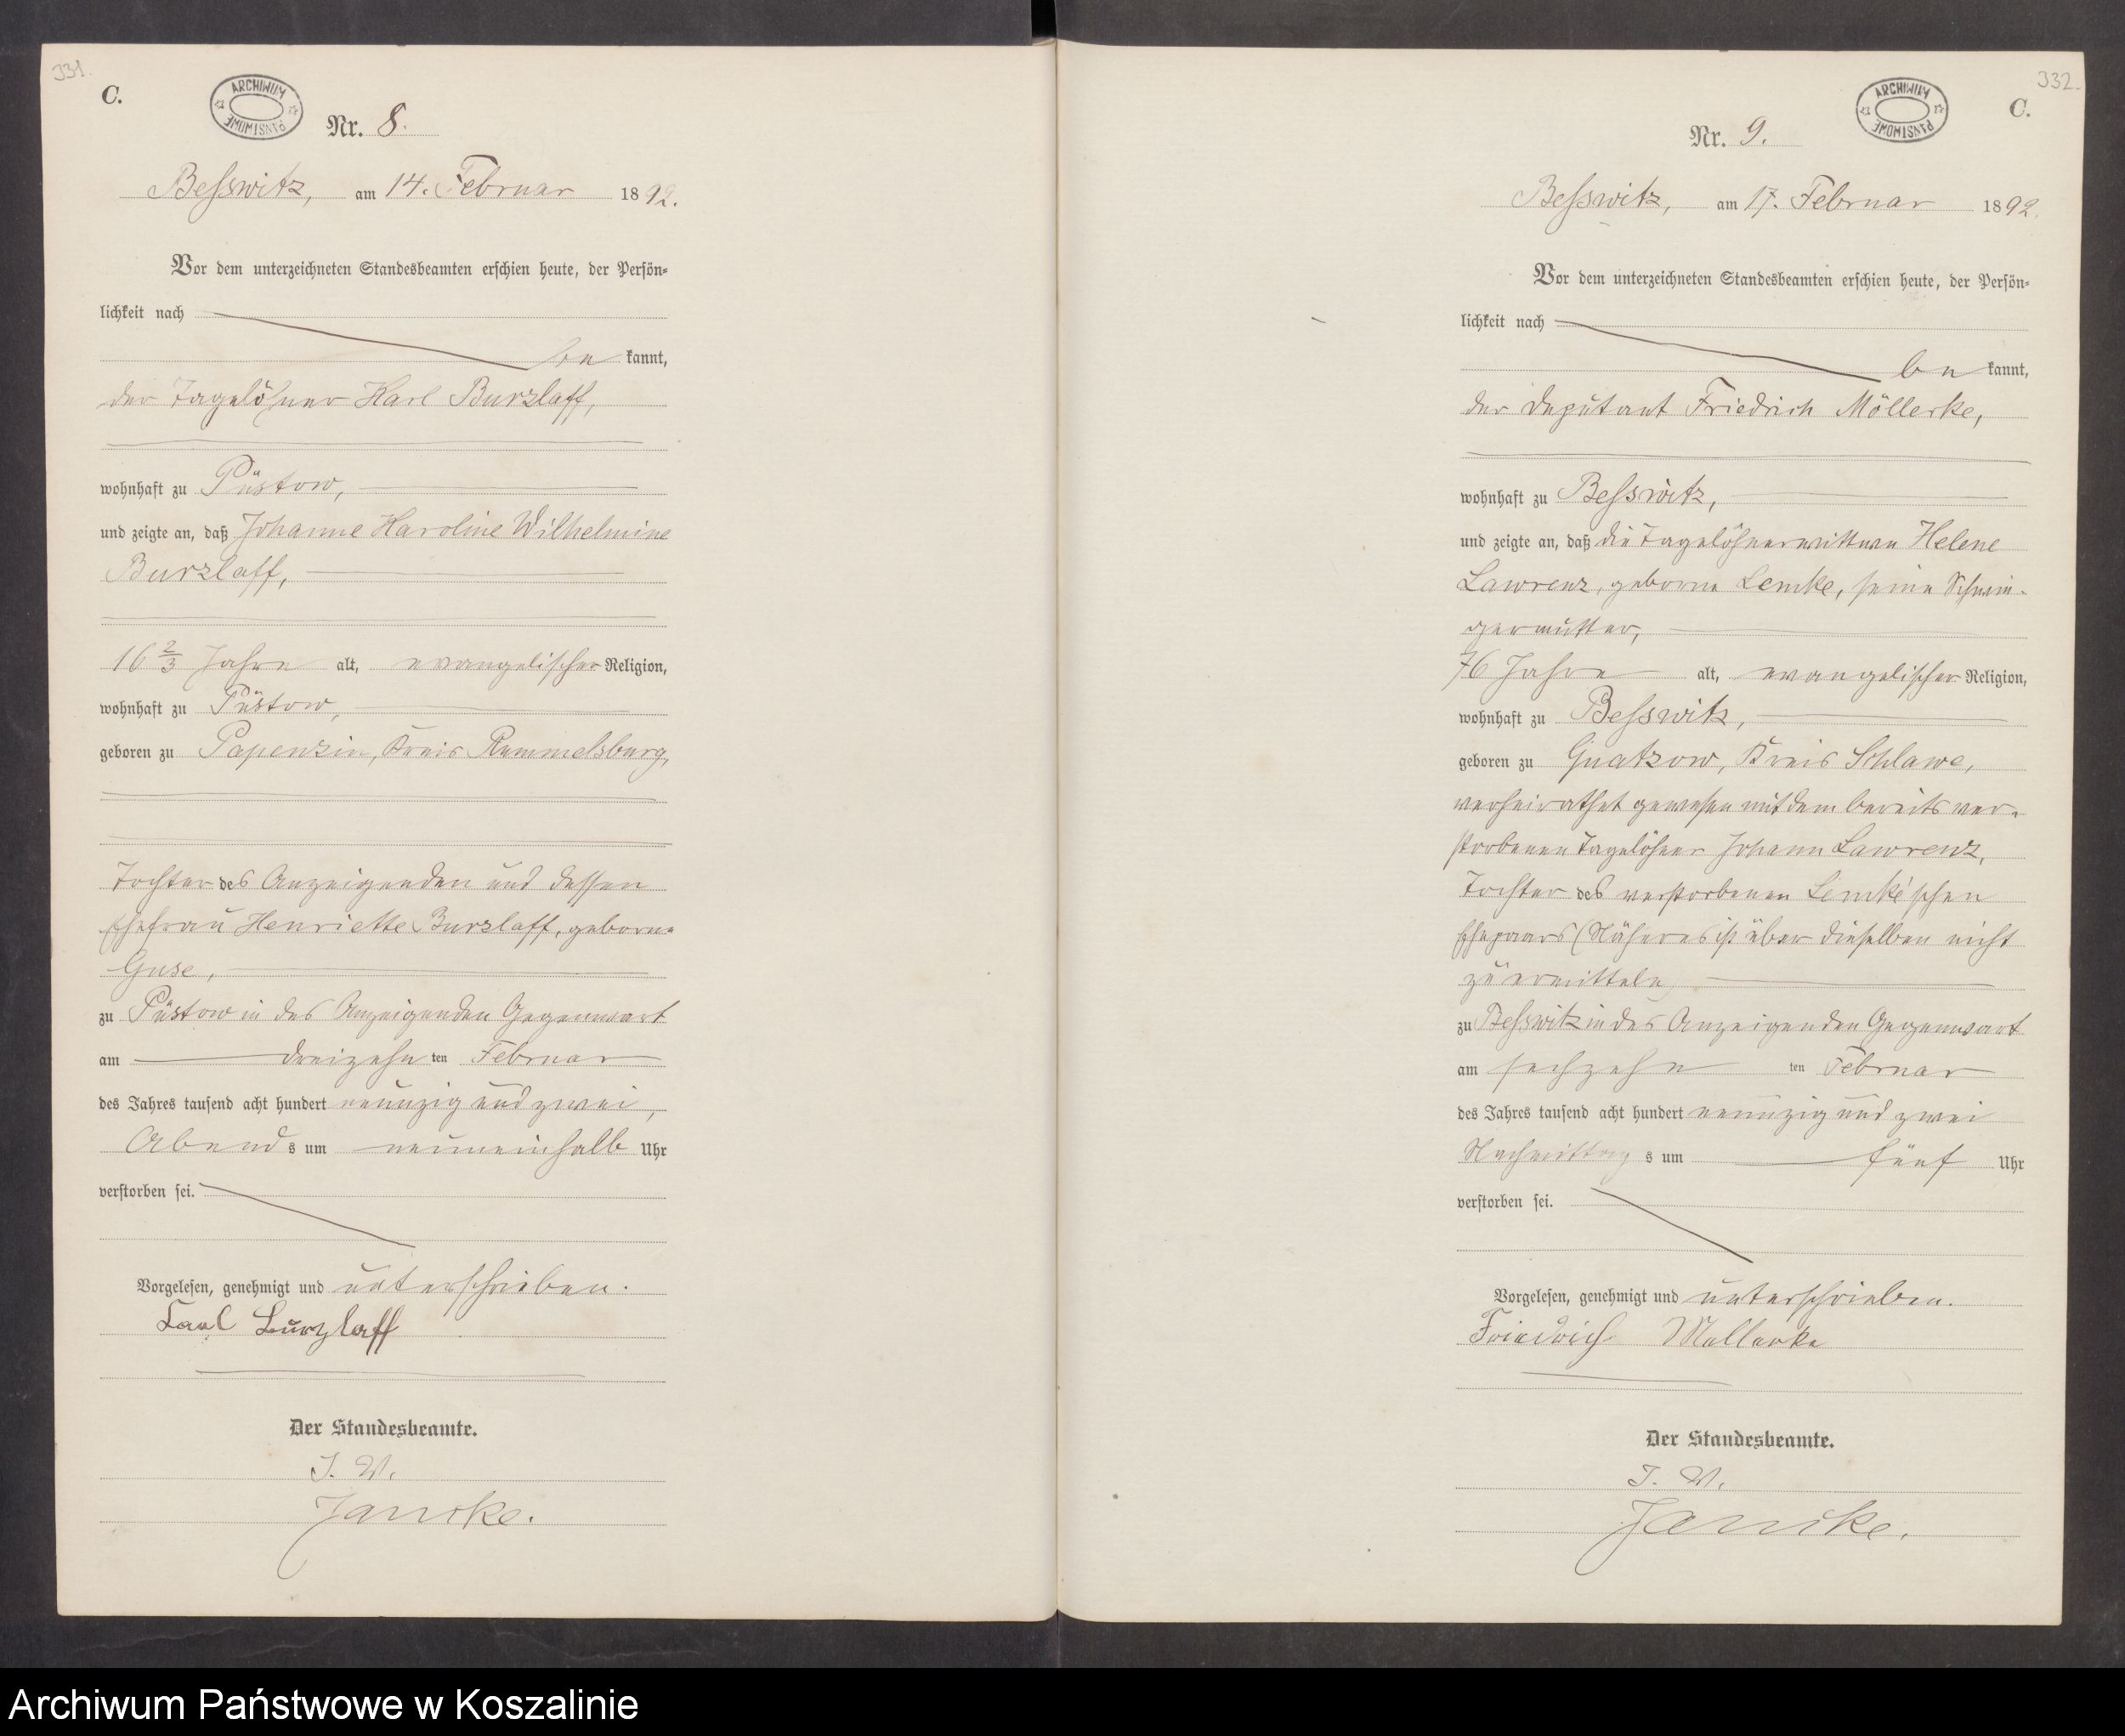 331.
C.
ARCHIWUM
PAŃSTWOWE
Nr. 8.
Besswitz, am 14. Februar 1892.
Vor dem unterzeichneten Standesbeamten erschien heute, der Persön-
lichkeit nach
be kannt,
der Tagelöhner Karl Burzlaff,
wohnhaft zu Püstow,
und zeigte an, daß Johanne Karoline Wilhelmine
Burzlaff,
16 2/3 Jahre alt, evangelischer Religion,
wohnhaft zu Püstow,
geboren zu Papenzin, Kreis Rummelsburg,
Tochter des Anzeigenden und dessen
Ehefrau Henriette Burzlaff, geborne
Guse,
zu Püstow in des Anzeigenden Gegenwart
am dreizehn ten Februar
des Jahres tausend acht hundert neunzig und zwei,
Abend s um neuneinhalb Uhr
verstorben sei.
Vorgelesen, genehmigt und unterschrieben.
Carl Burzlaff
Der Standesbeamte.
J. V.
Jancke.
332.
C.
ARCHIWUM
PAŃSTWOWE
Nr. 9.
Besswitz, am 17. Februar 1892.
Vor dem unterzeichneten Standesbeamten erschien heute, der Persön-
lichkeit nach
be kannt,
der Deputant Friedrich Möllerke,
wohnhaft zu Besswitz,
und zeigte an, daß die Tagelöhnerwittwe Helene
Lawrenz, geborne Lemke, seine Schwie-
germutter,
76 Jahre alt, evangelischer Religion,
wohnhaft zu Besswitz,
geboren zu Gnatzow, Kreis Schlawe,
verheirathet gewesen mit dem bereits ver-
storbenen Tagelöhner Johann Lawrenz,
Tochter des verstorbenen Lemke'schen
Ehepaars (Näheres ist über dieselben nicht
zu ermitteln)
zu Besswitz in des Anzeigenden Gegenwart
am sechzehn ten Februar
des Jahres tausend acht hundert neunzig und zwei
Nachmittag s um fünf Uhr
verstorben sei.
Vorgelesen, genehmigt und unterschrieben.
Friedrich Mellerke
Der Standesbeamte.
J. V.
Jancke.
Archiwum Państwowe w Koszalinie